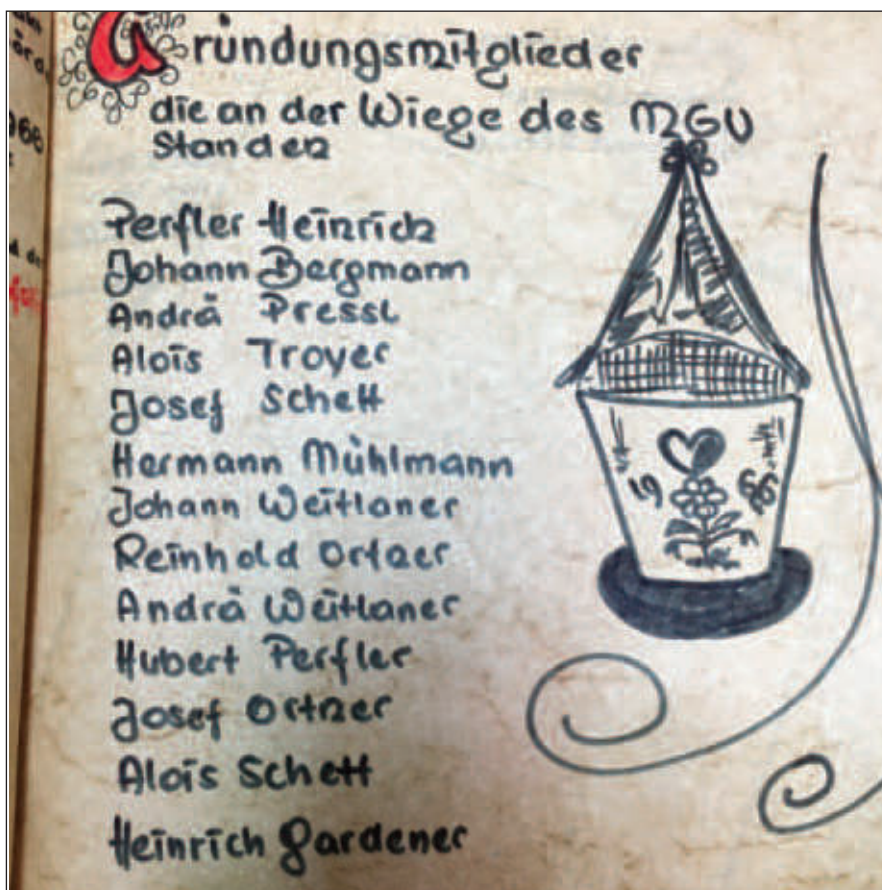 Gründungsmitglieder
die an der Wiege des MGV
standen
Perfler Heinrich
Johann Bergmann
Andrä Pressl
Alois Troyer
Josef Schett
Hermann Mühlmann
Johann Weitlaner
Reinhold Ortner
Andrä Weitlaner
Hubert Perfler
Josef Ortner
Alois Schett
Heinrich Gardener
19 66